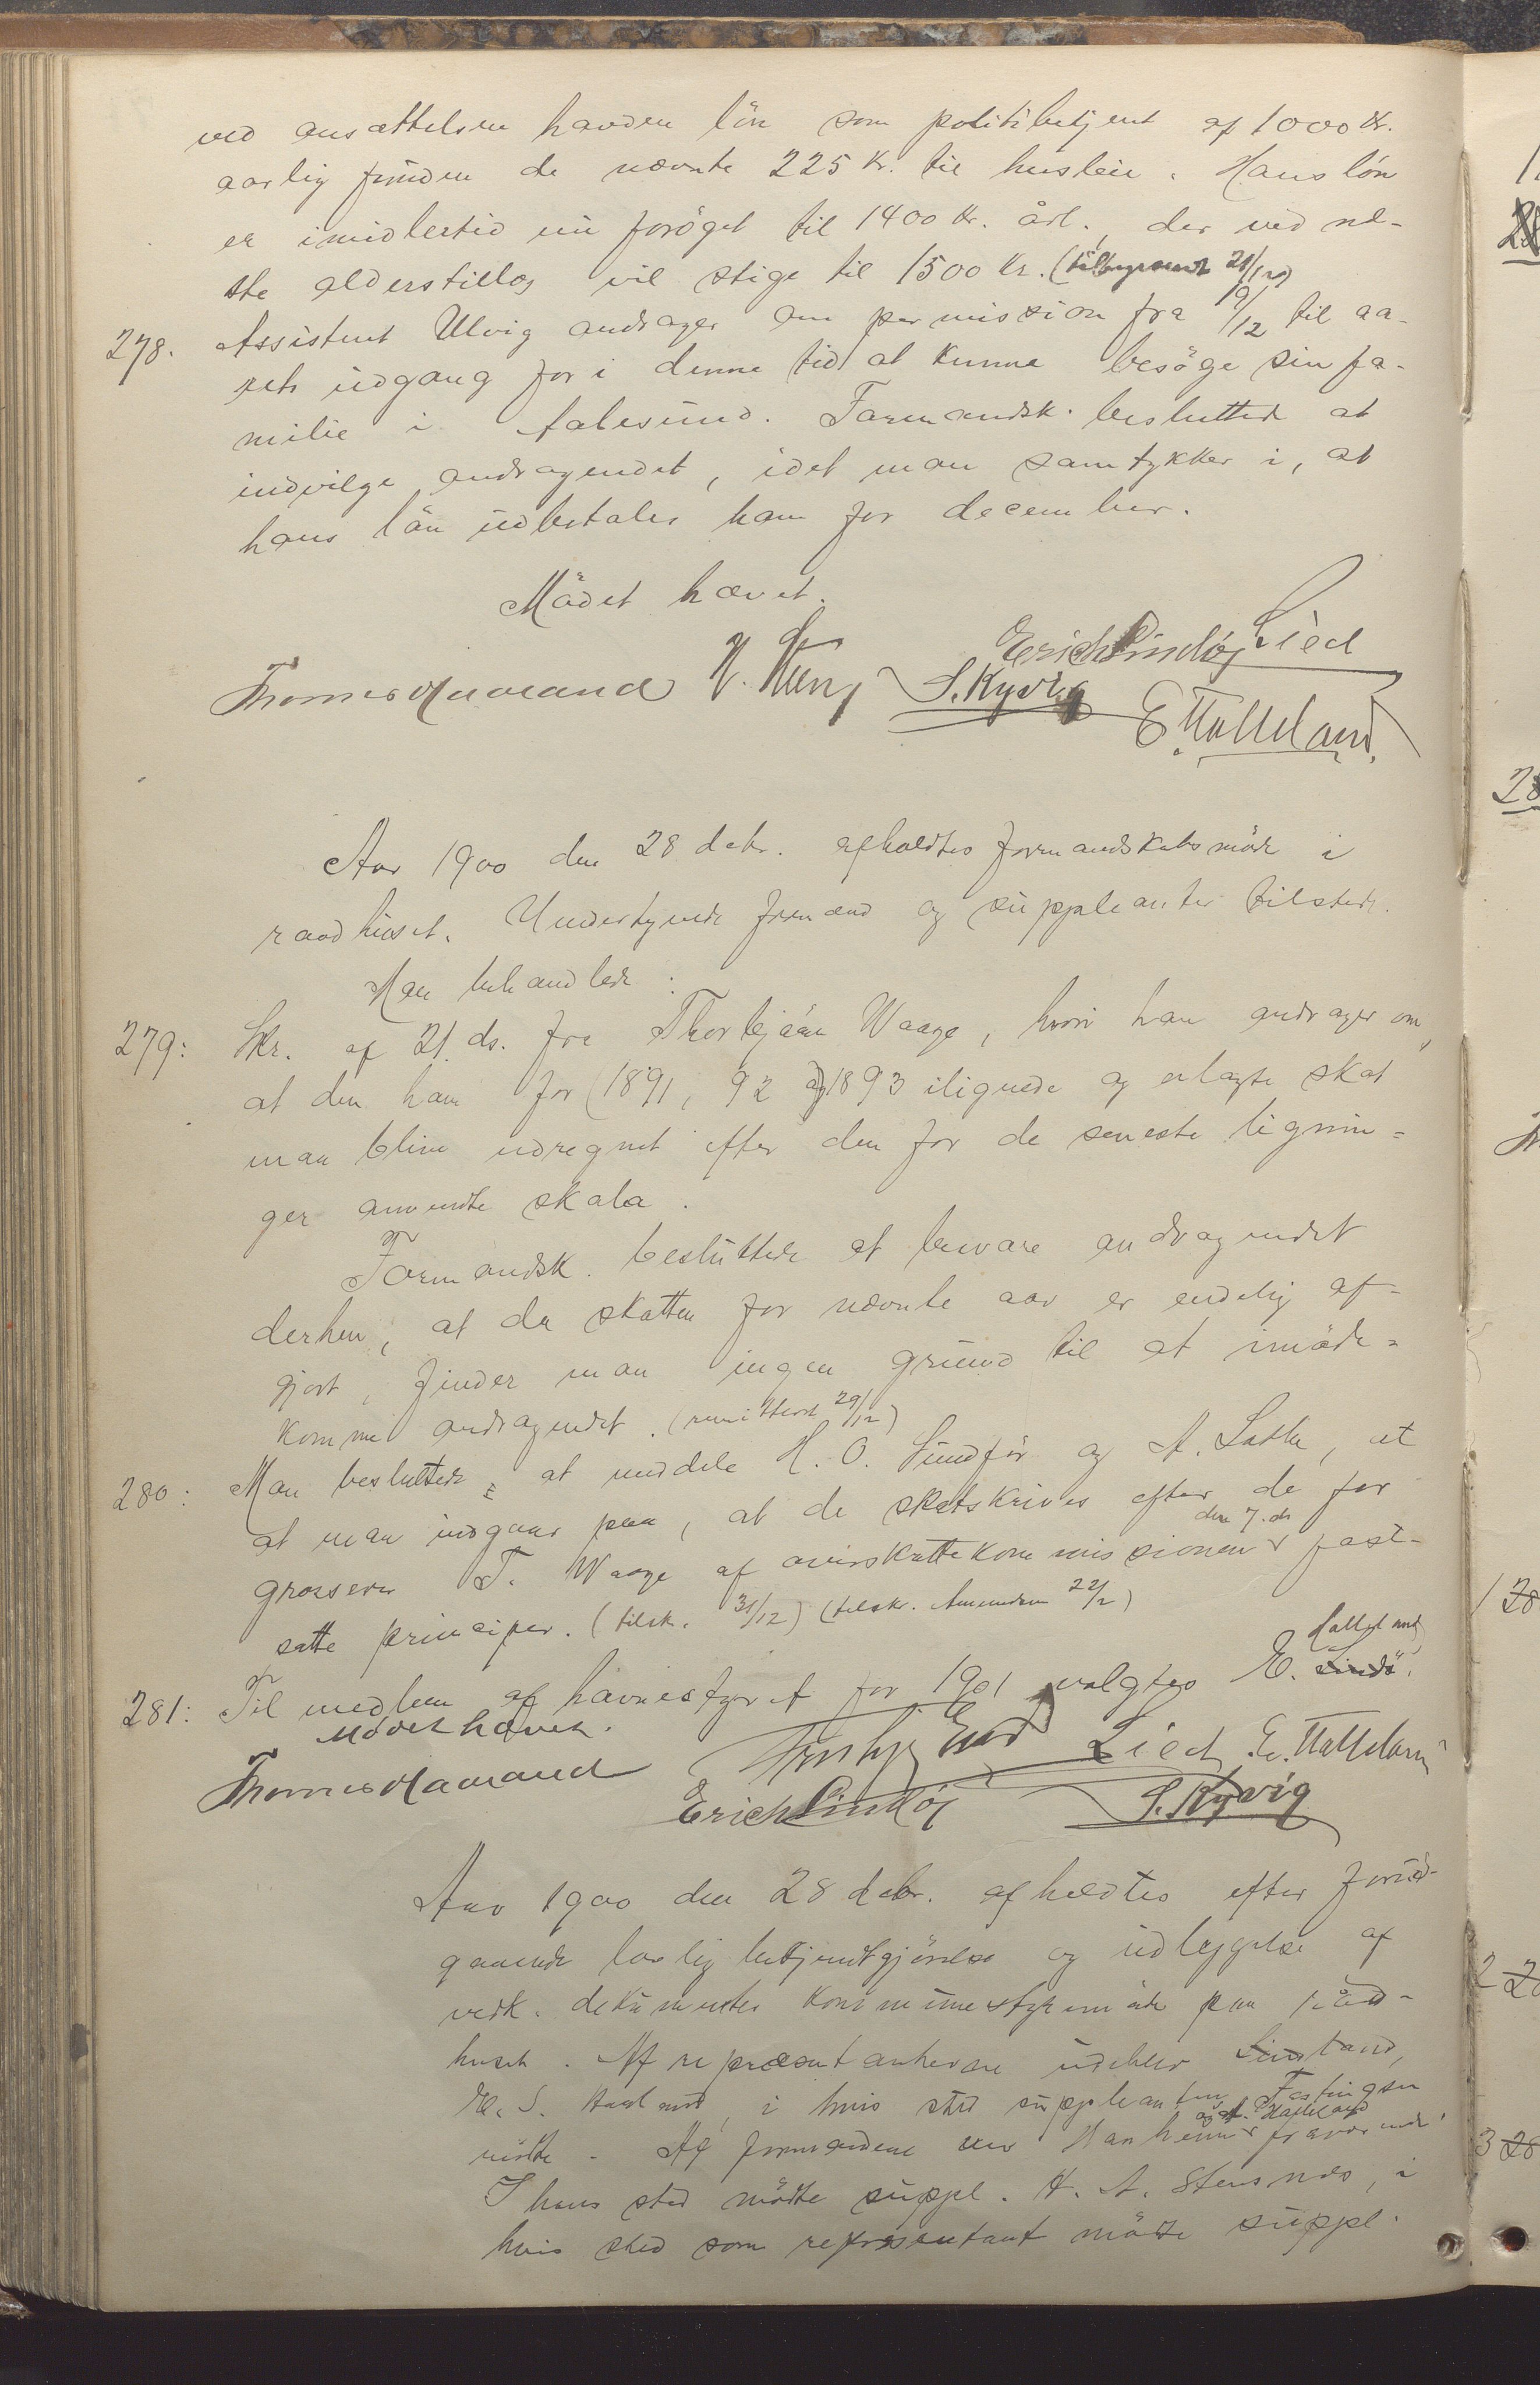 ved ansættelsen havden lön som politibetjent af 1000 Kr.
aarlig foruden de nævnte 225 Kr. til husleie. Hans lön
er imidlertid nu foröget til 1400 Kr. årl., der ved næ-
ste alderstillæg vil stige til 1500 Kr. 21/12)
278. Assistent Ulvig andrager om permission fra 19/12 til aa-
rets udgang for i denne tid at kunne besöge sin fa-
milie i Aalesund. Formandsk. besluttede at
indvilge andragendet, idet man samtykker i, at
hans lön udbetales ham for december.
Mödet hævet.
Erich Lindöe Lied
S. Kyvig
E. Hatteland.
Aar 1900 den 28 debr. afholdtes formandskabsmöde i
raadhuset. Undertegnede formænd og suppleanter tilstede.
Man behandlede:
279: Skr. af 21. ds. fra Thorbjörn Waage, hvori han andrager om,
at den ham for 1891, 92 og 1893 ilignede og erlagte skat
maa blive udregnet efter den for de seneste lignin-
ger anvendte skala.
Formandsk. besluttede at besvare andragendet
derhen, at da skatten for nævnte aar er endelig af-
gjort, finder man ingen grund til at imöde-
komme andragendet. (remitteret 29/12)
280: Man besluttede at meddele H. O. Sundför og A. Lothe, at
at man indgaar paa, at de skatskrives efter de for
grosserer T. Waage af overskattekommissionen den 7. ds fast-
satte principer. (tilsk. 31/12) (tilskr. 22/2)
281: Til medlem af havnestyret for 1901 valgtes E. Lindö. Hatteland
Mödet hævet.
Lied E. Hatteland
Erich Lindöe S. Kyvig
Aar 1900 den 28 debr. afholdtes efter forud-
gaaende lovlig bekjendtgjörelse og udlæggelse af
vedk. dokumenter kommunestyremöde paa raad-
huset. Af repræsentanterne udeblev
E. S. i hvis sted suppleanten Fastingsen og A. Hatteland
mödte. Af formændene var fraværende.
I hans sted mödte suppl. A. Stensnes, i
hvis sted som repræsentant mödte suppl.